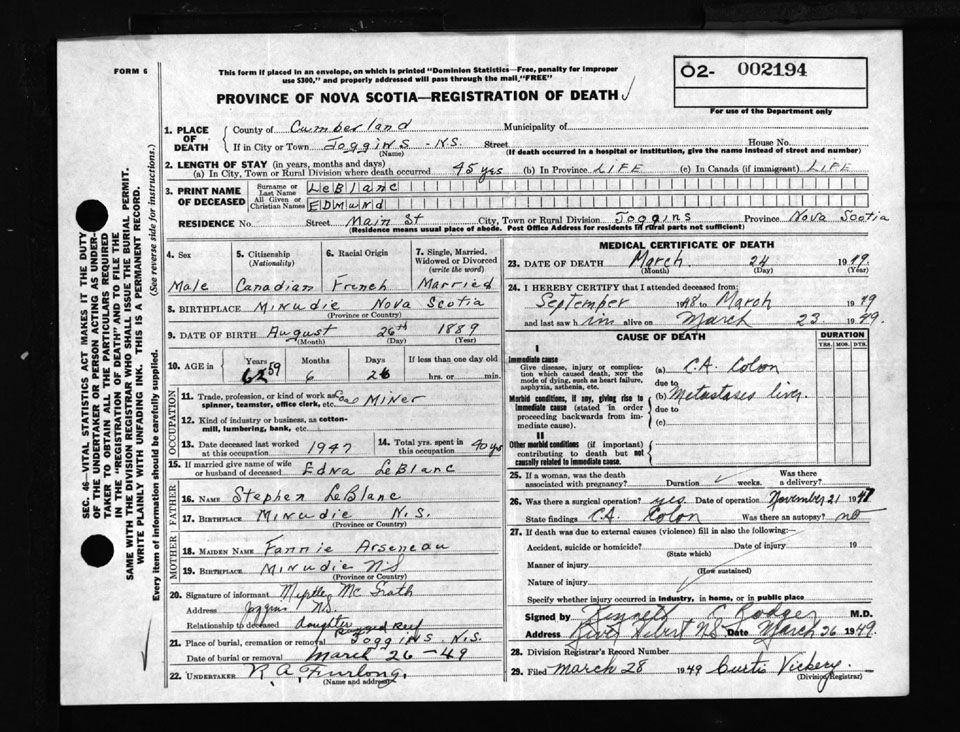 FORM 6
This form if placed in an envelope, on which is printed "Dominion Statistics—Free, penalty for improper
use $300," and properly addressed will pass through the mail "FREE"
PROVINCE OF NOVA SCOTIA—REGISTRATION OF DEATH
O2- 002194
For use of the Department only
SEC. 46—VITAL STATISTICS ACT MAKES IT THE DUTY
OF THE UNDERTAKER OR PERSON ACTING AS UNDER-
TAKER TO OBTAIN ALL THE PARTICULARS REQUIRED
IN THE "REGISTRATION OF DEATH" AND TO FILE THE
SAME WITH THE DIVISION REGISTRAR WHO SHALL ISSUE THE BURIAL PERMIT.
WRITE PLAINLY WITH UNFADING INK. THIS IS A PERMANENT RECORD.
Every item of information should be carefully supplied. (See reverse side for instructions.)
1. PLACE OF DEATH County of Cumberland Municipality of
If in City or Town Joggins - N.S. Street House No.
(Name) (If death occurred in a hospital or institution, give the name instead of street and number)
2. LENGTH OF STAY (in years, months and days)
(a) In City, Town or Rural Division where death occurred 45 yrs (b) In Province LIFE (c) In Canada (if immigrant) LIFE
3. PRINT NAME OF DECEASED Surname or Last Name LeBlanc
All Given or Christian Names EDMUND
RESIDENCE No. Street Main St City, Town or Rural Division Joggins Province Nova Scotia
(Residence means usual place of abode. Post Office Address for residents in rural parts not sufficient)
4. Sex 5. Citizenship (Nationality) 6. Racial Origin 7. Single, Married, Widowed or Divorced (write the word)
Male Canadian French Married
8. BIRTHPLACE Minudie Nova Scotia
(Province or Country)
9. DATE OF BIRTH August 26th 1889
(Month) (Day) (Year)
10. AGE Years Months Days If less than one day old
62 59 6 26 hrs. or min.
OCCUPATION
11. Trade, profession, or kind of work as spinner, teamster, office clerk, etc. Coal MINER
12. Kind of industry or business, as cotton-mill, lumbering, bank, etc.
13. Date deceased last worked at this occupation 1947 14. Total yrs. spent in this occupation 40 yrs
15. If married give name of wife or husband of deceased Edna LeBlanc
FATHER
16. NAME Stephen LeBlanc
17. BIRTHPLACE Minudie N.S.
(Province or Country)
MOTHER
18. MAIDEN NAME Fannie Arseneau
19. BIRTHPLACE Minudie N S
(Province or Country)
20. Signature of informant McGrath
Address Joggins N.S.
Relationship to deceased daughter
21. Place of burial, cremation or removal Ragged Reef Joggins N.S.
Date of burial or removal March 26 - 49
22. UNDERTAKER R. A. Furlong.
(Name and address)
MEDICAL CERTIFICATE OF DEATH
23. DATE OF DEATH March 24 1949.
(Month) (Day) (Year)
24. I HEREBY CERTIFY that I attended deceased from:
September 1948 to March 1949
and last saw him alive on March 23 1949.
CAUSE OF DEATH DURATION
YRS. MOS. DYS.
I
Immediate cause
Give disease, injury or complication which caused death, not the mode of dying, such as heart failure, asphyxia, asthenia, etc.
(a) C.A. Colon
due to
Morbid conditions, if any, giving rise to immediate cause (stated in order proceeding backwards from immediate cause).
(b) Metastases liver.
due to
(c)
II
Other morbid conditions (if important) contributing to death but not causally related to immediate cause.
25. If a woman, was the death associated with pregnancy? Duration weeks. Was there a delivery?
26. Was there a surgical operation? yes. Date of operation November 21 1947
State findings C.A. Colon Was there an autopsy? no
27. If death was due to external causes (violence) fill in also the following:—
Accident, suicide or homicide? Date of injury 19
(State which)
Manner of injury
(How sustained)
Nature of injury
Specify whether injury occurred in industry, in home, or in public place
Signed by Kenneth C. Rodger M.D.
Address River Hebert N.S. Date March 26 1949.
28. Division Registrar's Record Number
29. Filed March 28 1949 Curtis Vickery.
(Division Registrar)